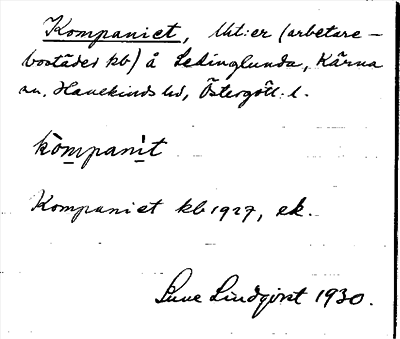 Kompaniet, Utt:er (arbetare-
bostäder kb) å Ledinglunda, Kärna
sn, Hanekinds hd, Östergötl:s l.
kòmpanìt
Kompaniet kb 1927, ek.
Sune Lindqvist 1930.